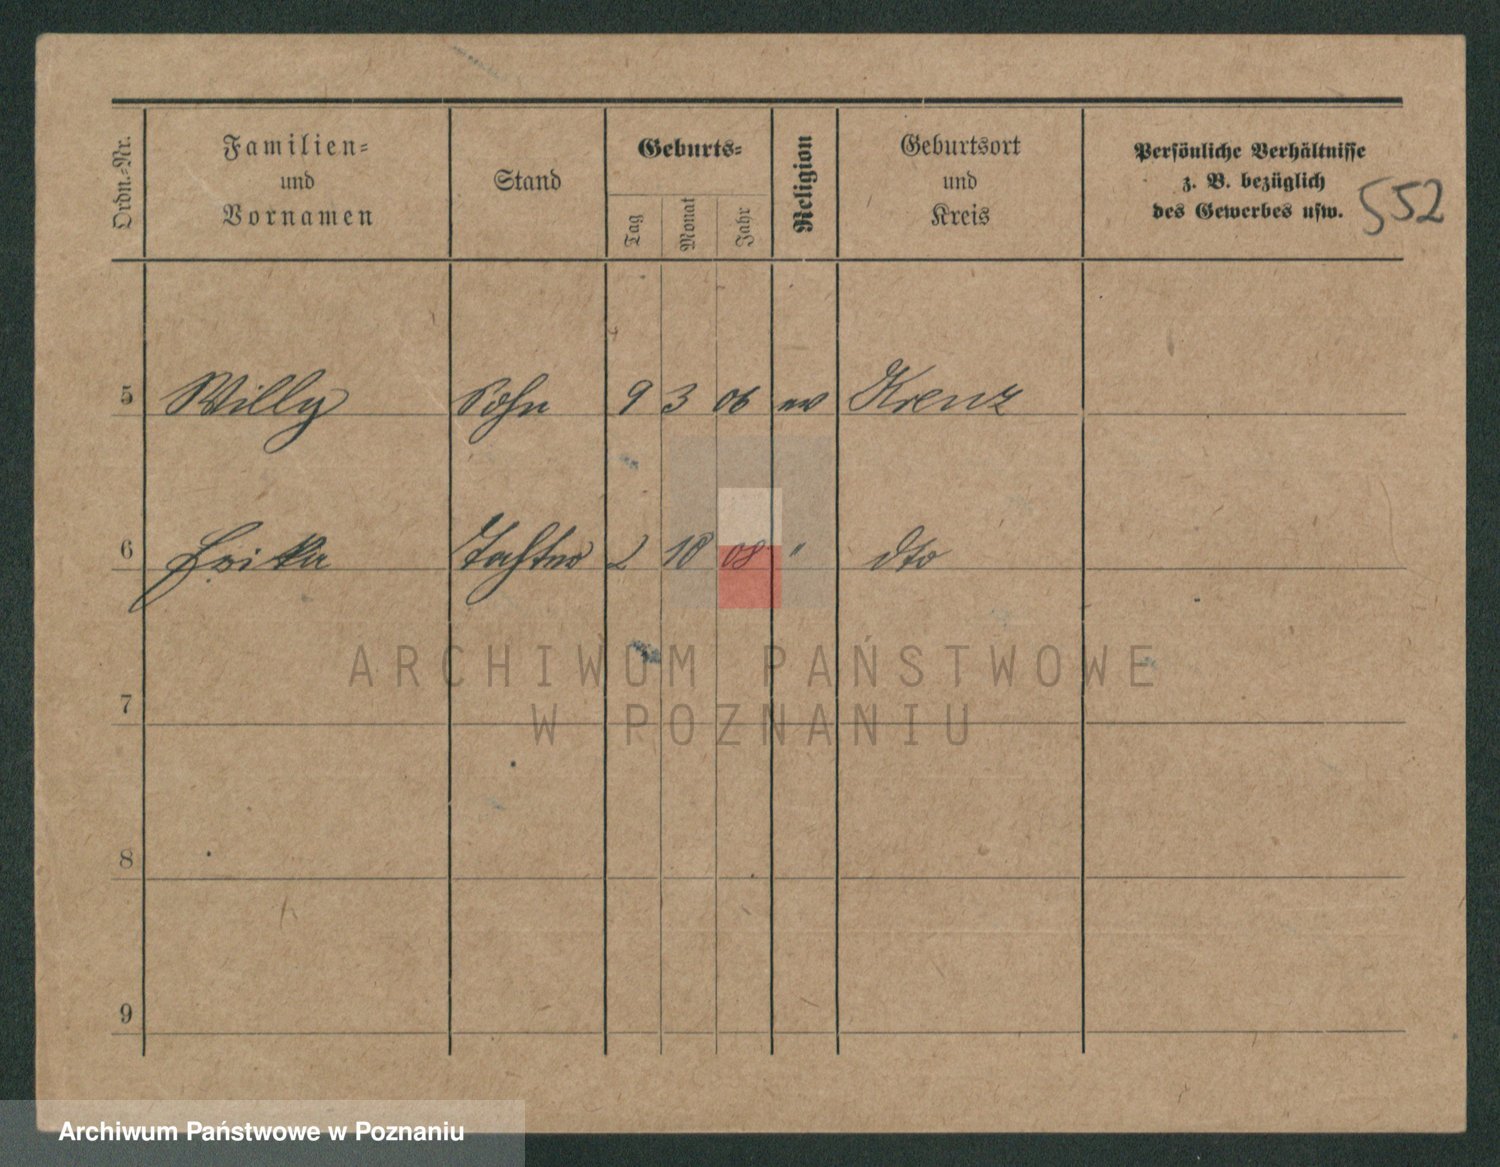 Ordn.-Nr.
Familien-
und
Vornamen
Stand
Geburts-
Tag
Monat
Jahr
Religion
Geburtsort
und
Kreis
Persönliche Verhältnisse
z. B. bezüglich
des Gewerbes usw.
552
5 Willy Sohn 9 3 06 ev Krenz
6 Erika Tochter 2 10 08 " dto
ARCHIWUM PAŃSTWOWE
W POZNANIU
7
8
9
Archiwum Państwowe w Poznaniu